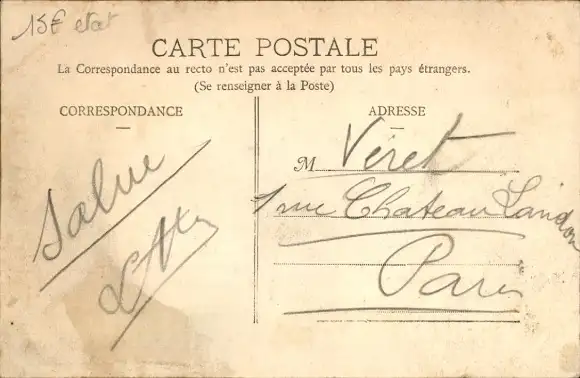 15€ etat
CARTE POSTALE
La Correspondance au recto n'est pas acceptée par tous les pays étrangers.
(Se renseigner à la Poste)
CORRESPONDANCE
Salue
ADRESSE
M Veret
1 rue Chateau Landon
Paris